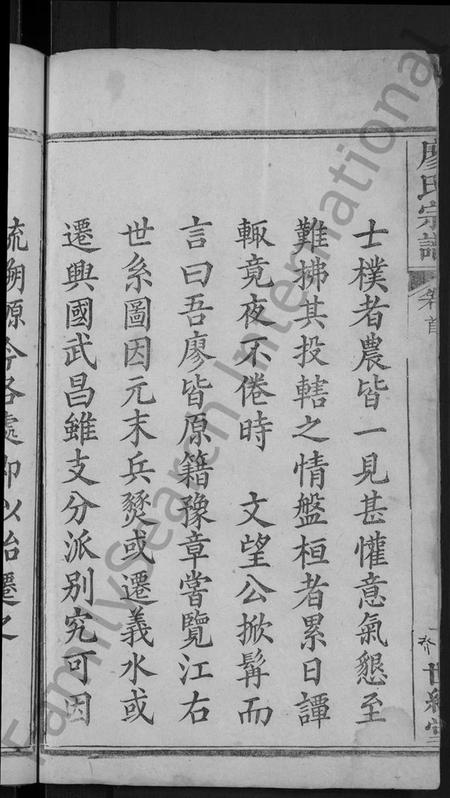 廖氏宗譜
卷首
世綵堂
士樸者農皆一見甚懽意氣懇至
難拂其投轄之情盤桓者累日譚
輙竟夜不倦時 文望公掀髯而
言曰吾廖皆原籍豫章嘗覽江右
世系圖因元末兵燹或遷義水或
遷興國武昌雖支分派別究可因
流溯源今各處卽以始遷之
FamilySearch International